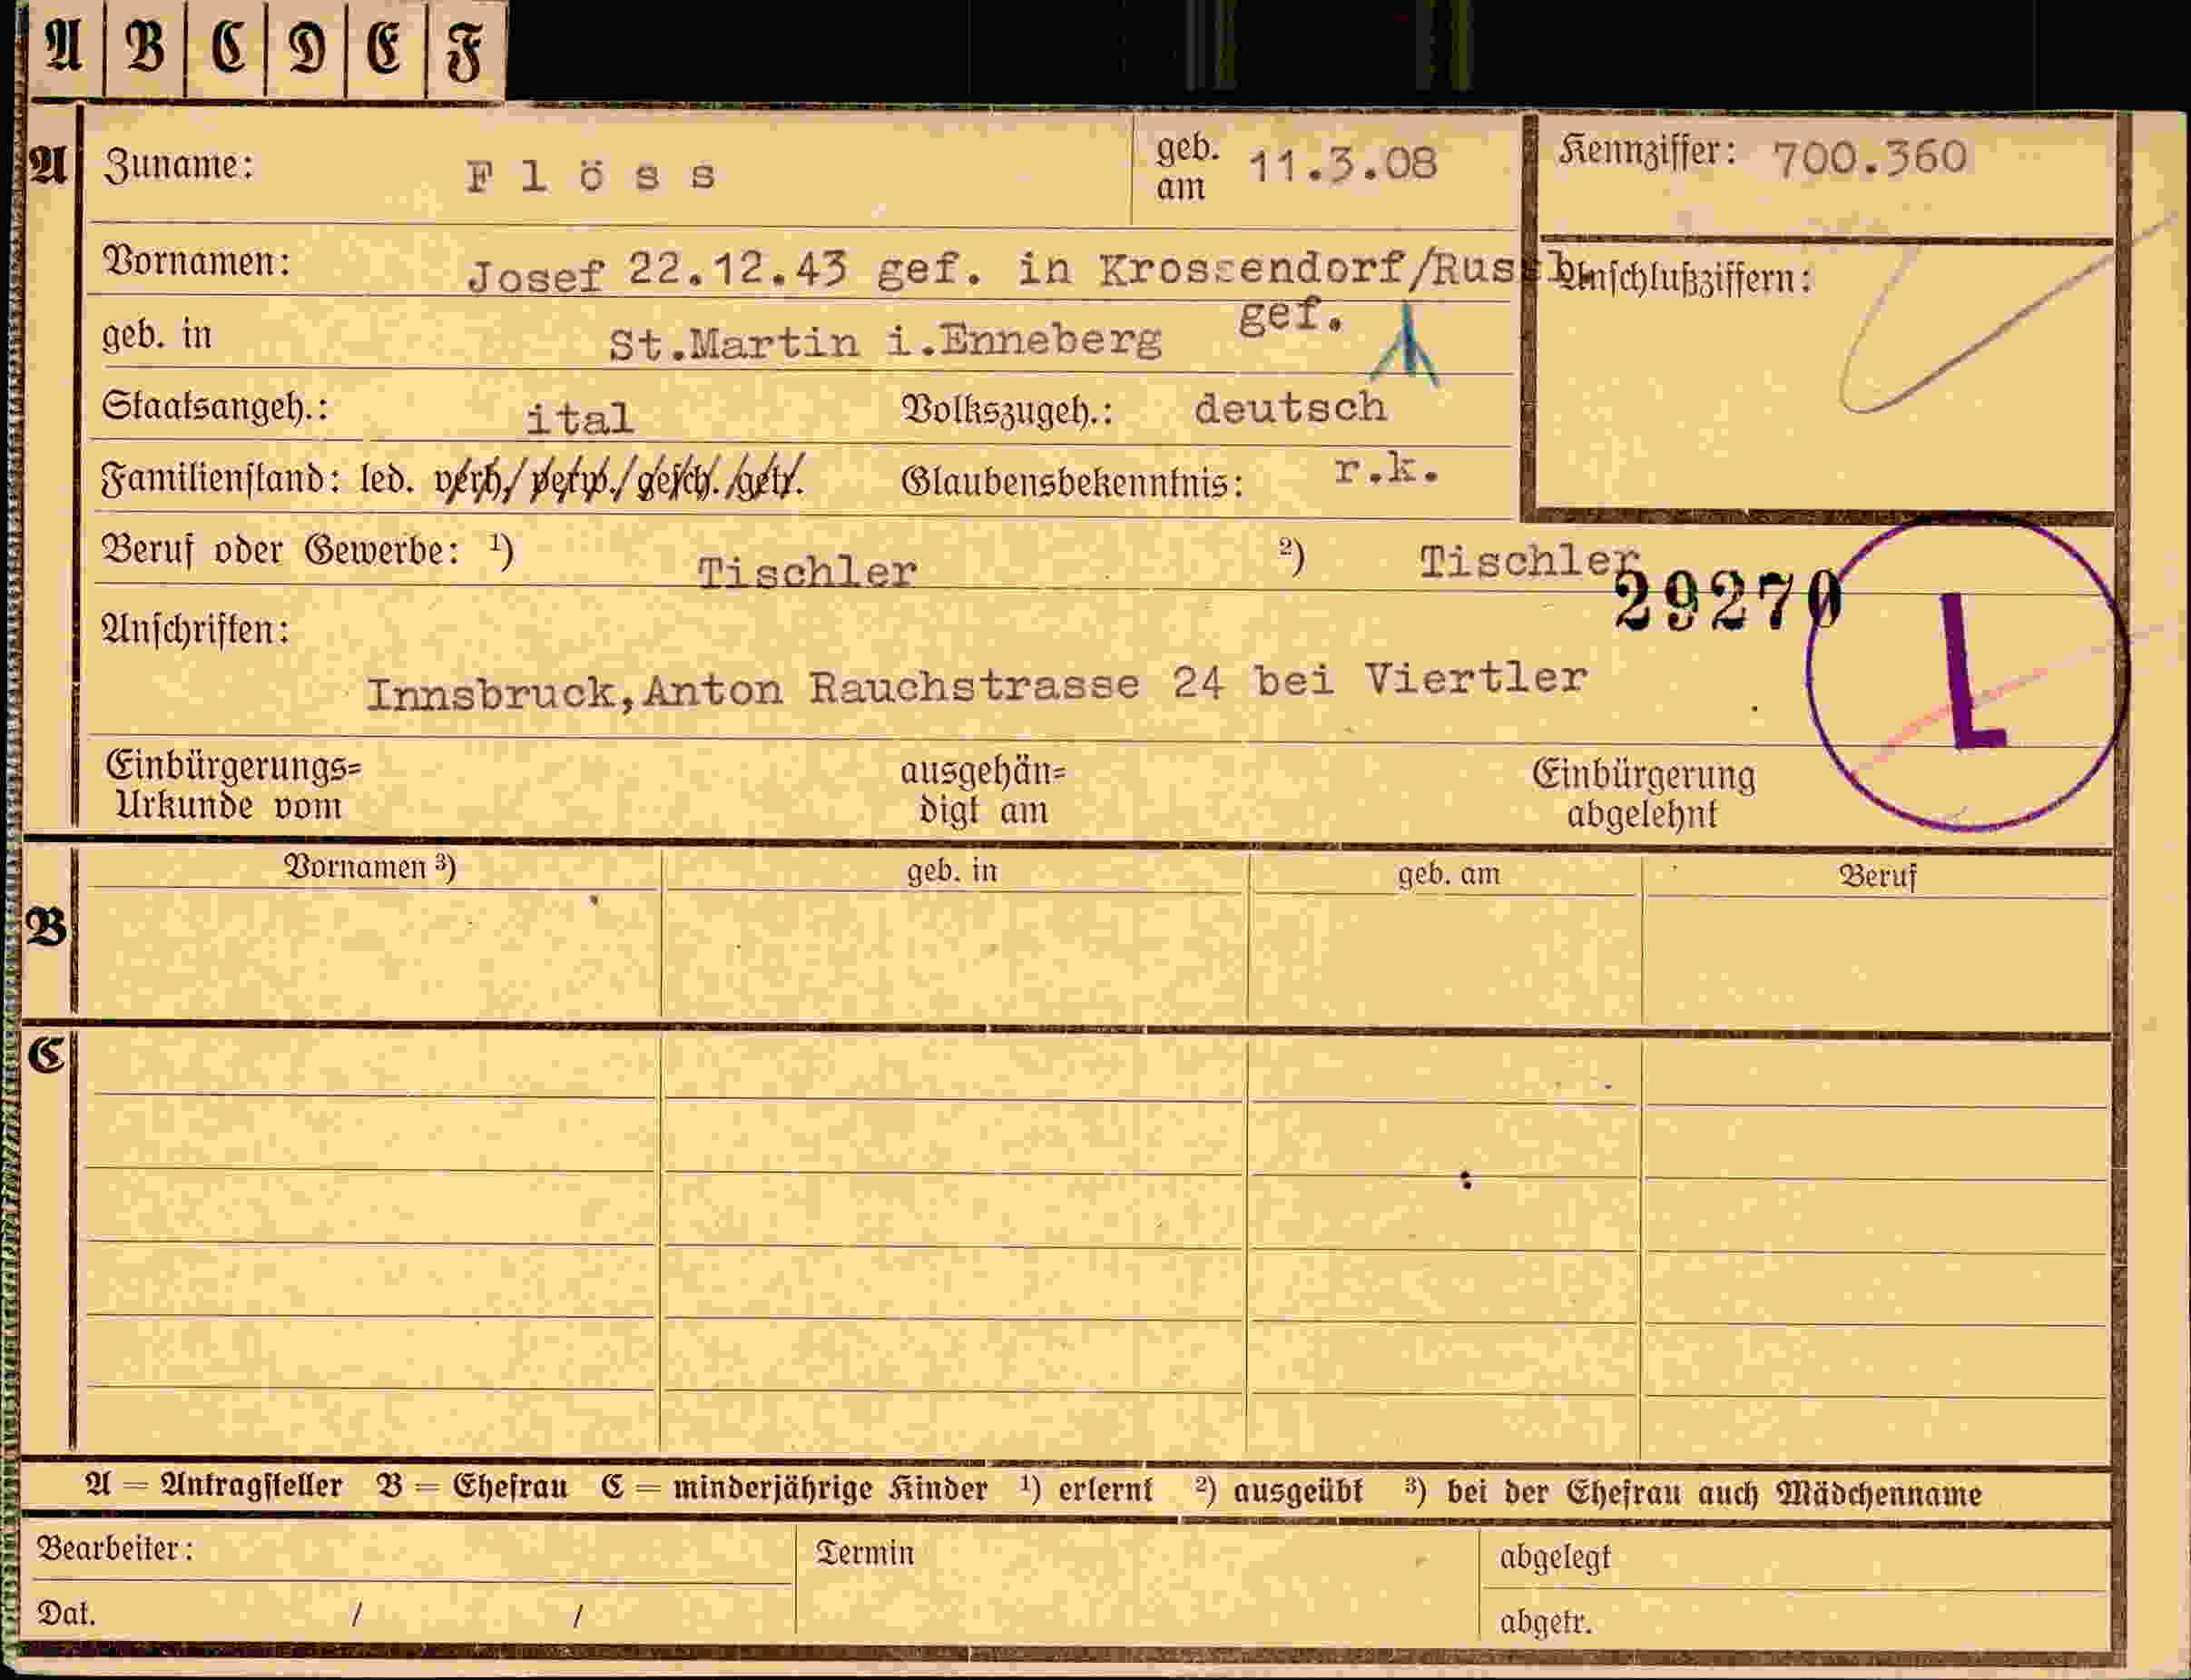 A B C D E F
A Zuname: Flöss geb. am 11.3.08 Kennziffer: 700.360
Vornamen: Josef 22.12.43 gef. in Krossendorf/Russ Anschlußziffern:
geb. in St.Martin i.Enneberg gef.
Staatsangeh.: ital Volkszugeh.: deutsch
Familienstand: led. verh./ verw./ gesch. /getr. Glaubensbekenntnis: r.k.
Beruf oder Gewerbe: ¹) Tischler ²) Tischler
29270
L
Anschriften:
Innsbruck,Anton Rauchstrasse 24 bei Viertler
Einbürgerungs= ausgehän= Einbürgerung
Urkunde vom digt am abgelehnt
Vornamen ³) geb. in geb. am Beruf
B
C
A = Antragsteller B = Ehefrau C = minderjährige Kinder ¹) erlernt ²) ausgeübt ³) bei der Ehefrau auch Mädchenname
Bearbeiter: Termin abgelegt
Dat. / / abgetr.